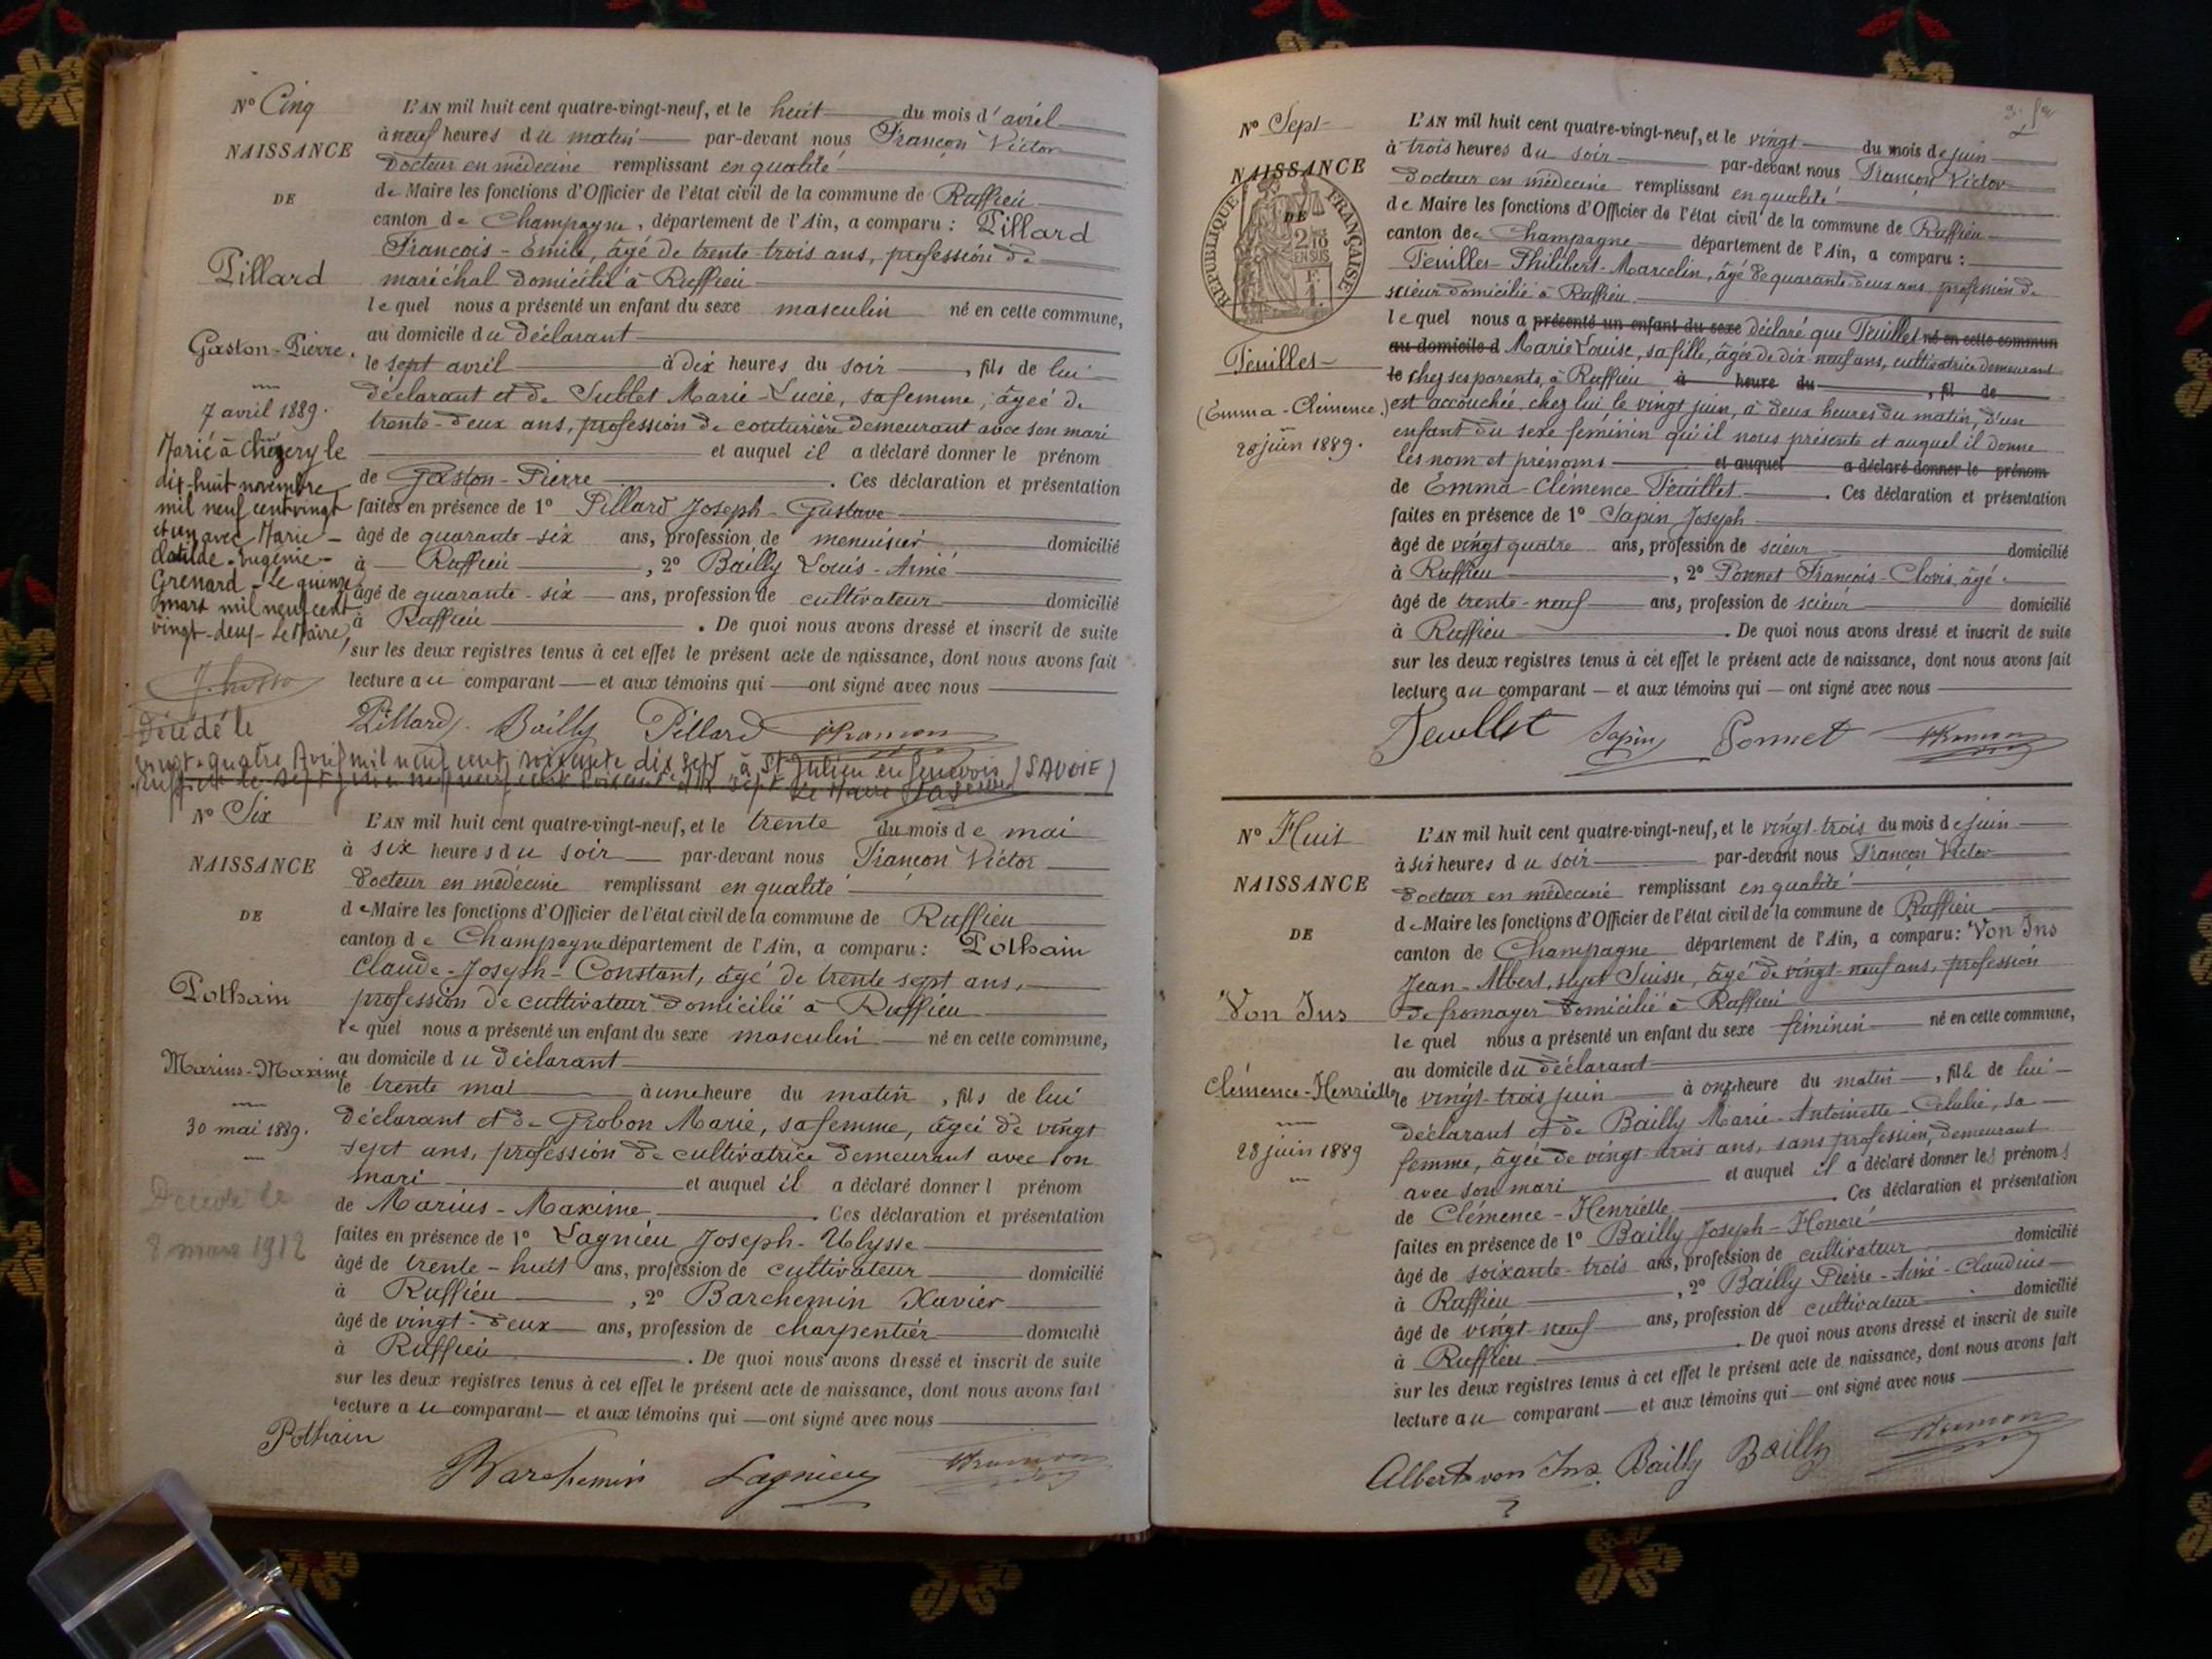 N° Cinq
NAISSANCE
DE
Pillard
Gaston-Pierre.
7 avril 1889.
Marié à Chézery le
dix-huit novembre
mil neuf cent vingt
et un avec Marie-
Clotilde-Eugénie-
Grenard - Le quinze
mars mil neuf cent
vingt-deux - Le Maire,
L'AN mil huit cent quatre-vingt-neuf, et le huit du mois d'avril
à neuf heures du matin par-devant nous Françon Victor
Docteur en médecine remplissant en qualité
de Maire les fonctions d'Officier de l'état civil de la commune de Ruffieu
canton de Champagne, département de l'Ain, a comparu : Pillard
François-Emile, âgé de trente-trois ans, profession de
maréchal domicilié à Ruffieu
lequel nous a présenté un enfant du sexe masculin né en cette commune,
au domicile du déclarant
le sept avril à dix heures du soir, fils de lui
déclarant et de Sublet Marie-Lucie, sa femme, âgée de
trente-deux ans, profession de couturière demeurant avec son mari
et auquel il a déclaré donner le prénom
de Gaston-Pierre. Ces déclaration et présentation
faites en présence de 1° Pillard Joseph-Gustave
âgé de quarante-six ans, profession de menuisier domicilié
à Ruffieu, 2° Bailly Louis-Aimé
âgé de quarante-six ans, profession de cultivateur domicilié
à Ruffieu. De quoi nous avons dressé et inscrit de suite
sur les deux registres tenus à cet effet le présent acte de naissance, dont nous avons fait
lecture au comparant et aux témoins qui ont signé avec nous
Pillard Bailly Pillard Françon
Décédé le
vingt-quatre Avril mil neuf cent soixante dix sept à St Julien en Genevois (SAVOIE)
Ruffieu le sept
Le Maire
N° Six
NAISSANCE
DE
Pothain
Marius-Maxime
30 mai 1889.
Décédé le
8 mars 1912
L'AN mil huit cent quatre-vingt-neuf, et le trente du mois de mai
à six heures du soir par-devant nous Françon Victor
Docteur en médecine remplissant en qualité
de Maire les fonctions d'Officier de l'état civil de la commune de Ruffieu
canton de Champagne département de l'Ain, a comparu : Pothain
Claude-Joseph-Constant, âgé de trente sept ans,
profession de cultivateur domicilié à Ruffieu
lequel nous a présenté un enfant du sexe masculin né en cette commune,
au domicile du déclarant
le trente mai à une heure du matin, fils de lui
déclarant et de Grobon Marie, sa femme, âgée de vingt
sept ans, profession de cultivatrice demeurant avec son
mari et auquel il a déclaré donner l prénom
de Marius-Maxime. Ces déclaration et présentation
faites en présence de 1° Lagnieu Joseph-Ulysse
âgé de trente-huit ans, profession de cultivateur domicilié
à Ruffieu, 2° Barchemin Xavier
âgé de vingt-deux ans, profession de charpentier domicilié
à Ruffieu. De quoi nous avons dressé et inscrit de suite
sur les deux registres tenus à cet effet le présent acte de naissance, dont nous avons fait
lecture au comparant et aux témoins qui ont signé avec nous
Pothain
Barchemin Lagnieu Françon
N° Sept
NAISSANCE
DE
RÉPUBLIQUE FRANÇAISE
2/10
EN SUS
Feuilles
(Emma-Clémence.)
20 juin 1889.
L'AN mil huit cent quatre-vingt-neuf, et le vingt du mois de juin
à trois heures du soir par-devant nous Françon Victor
Docteur en médecine remplissant en qualité
de Maire les fonctions d'Officier de l'état civil de la commune de Ruffieu
canton de Champagne département de l'Ain, a comparu :
Feuilles-Philibert-Marcelin, âgé de quarante-deux ans, profession de
scieur domicilié à Ruffieu
lequel nous a présenté un enfant du sexe déclaré que Feuillet né en cette commun
au domicile d Marie Louise, sa fille, âgée de dix-neuf ans, cultivatrice demeurant
le chez ses parents, à Ruffieu à heure du , fil de
est accouchée, chez lui le vingt juin, à deux heures du matin, d'un
enfant du sexe féminin qu'il nous présente et auquel il donne
les nom et prénoms et auquel a déclaré donner le prénom
de Emma-Clémence Feuillet. Ces déclaration et présentation
faites en présence de 1° Sapin Joseph
âgé de vingt quatre ans, profession de scieur domicilié
à Ruffieu, 2° Ponnet François-Clovis, âgé
âgé de trente-neuf ans, profession de scieur domicilié
à Ruffieu. De quoi nous avons dressé et inscrit de suite
sur les deux registres tenus à cet effet le présent acte de naissance, dont nous avons fait
lecture au comparant et aux témoins qui ont signé avec nous
Feuillet Sapin Ponnet Françon
N° Huit
NAISSANCE
DE
Von Ins
Clémence-Henriette
23 juin 1889
L'AN mil huit cent quatre-vingt-neuf, et le vingt-trois du mois de juin
à six heures du soir par-devant nous Françon Victor
Docteur en médecine remplissant en qualité
de Maire les fonctions d'Officier de l'état civil de la commune de Ruffieu
canton de Champagne département de l'Ain, a comparu : Von Ins
Jean-Albert, sujet Suisse, âgé de vingt-neuf ans, profession
de fromager domicilié à Ruffieu
lequel nous a présenté un enfant du sexe féminin né en cette commune,
au domicile du déclarant
le vingt-trois juin à onze heure du matin, fille de lui
déclarant et de Bailly Marie-Antoinette-Célulie, sa
femme, âgée de vingt-trois ans, sans profession, demeurant
avec son mari et auquel il a déclaré donner les prénoms
de Clémence-Henriette. Ces déclaration et présentation
faites en présence de 1° Bailly Joseph-Honoré
âgé de soixante-trois ans, profession de cultivateur domicilié
à Ruffieu, 2° Bailly Pierre-Aimé-Claudius
âgé de vingt-neuf ans, profession de cultivateur domicilié
à Ruffieu. De quoi nous avons dressé et inscrit de suite
sur les deux registres tenus à cet effet le présent acte de naissance, dont nous avons fait
lecture au comparant et aux témoins qui ont signé avec nous
Albert von Ins. Bailly Bailly Françon